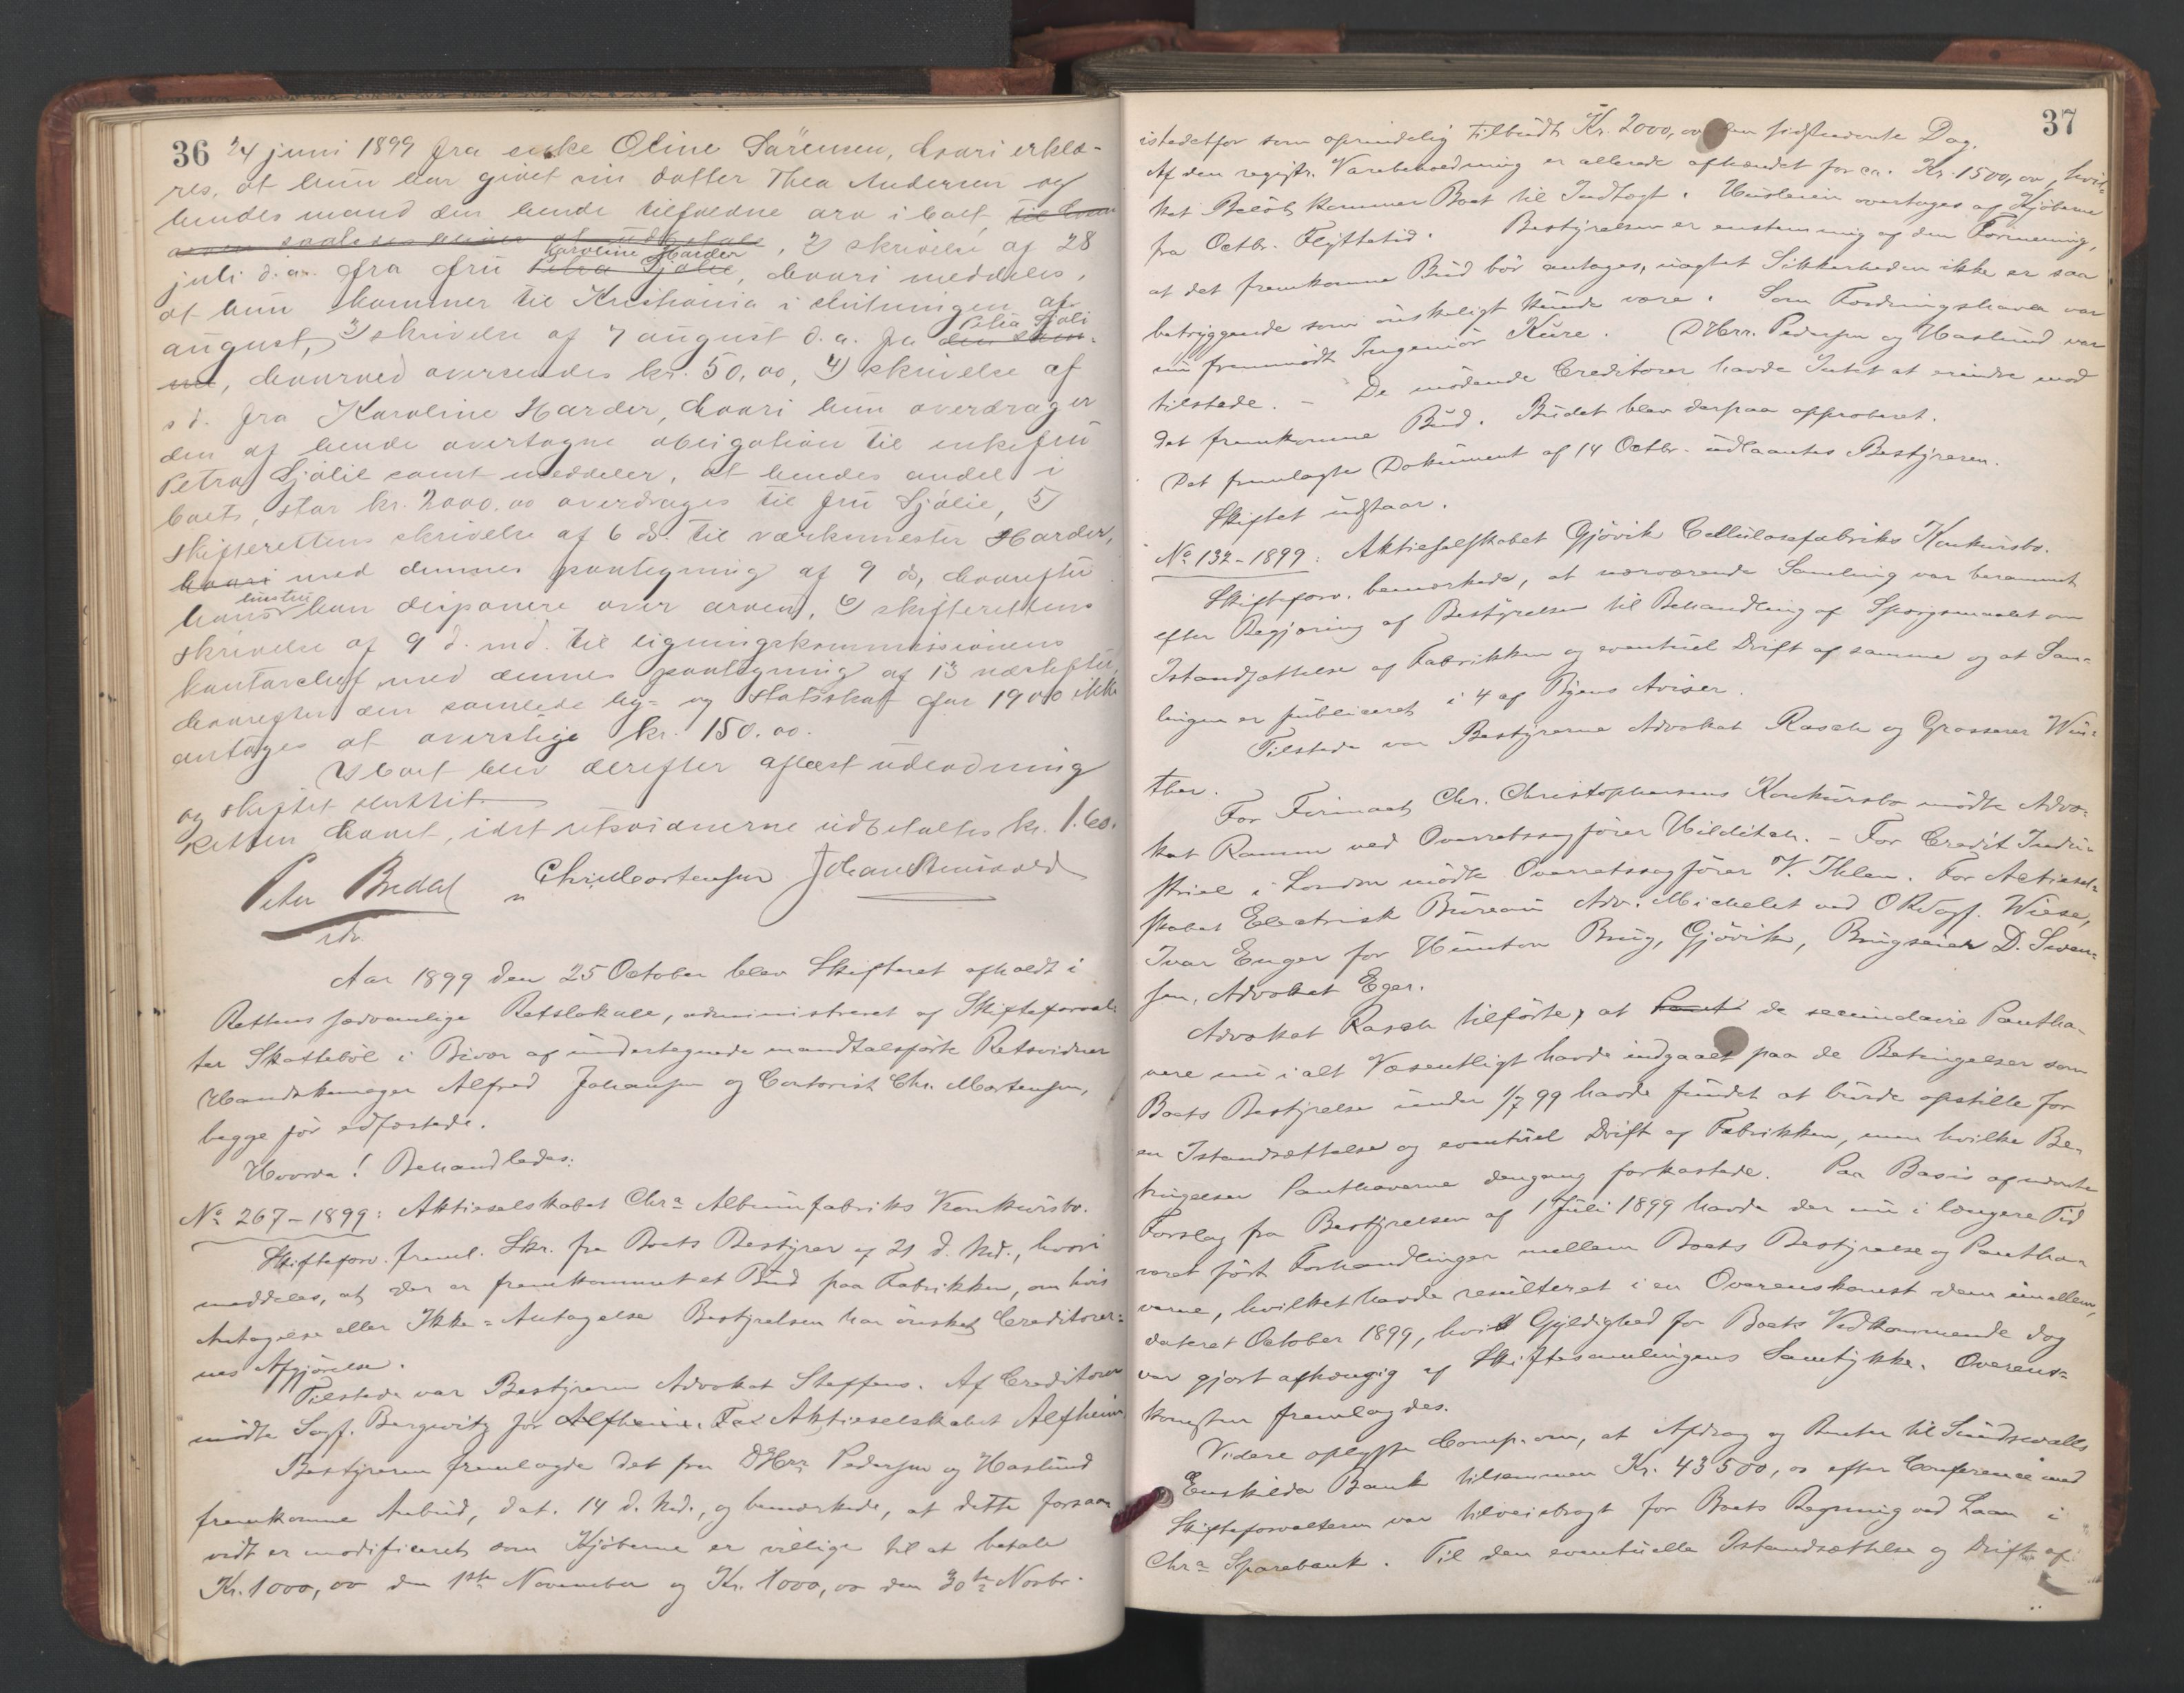 36
24 juni 1899 fra enke Oline Sörensen, hvori erklæ-
res, at hun har givet sin datter Thea Andersen og
hendes mand den hende tilfaldne arv i boet,
, 2) skrivelse af 28
juli d. a. fra fru Petra Sjölie Karoline Harder, hvori meddeles,
at hun kommer til Kristiania i slutningen af
august, 3) skrivelse af 7 august d. a. fra Petra Sjöli
, hvorved oversendes kr. 50,00, 4) skrivelse af
s. d. fra Karoline Harder, hvori hun overdrager
den af hende overtagne obligation til enkefru
Petra Sjölie samt meddeler, at hendes andel i
boets, stor kr. 2000.00 overdrages til fru Sjölie, 5)
skifterettens skrivelse af 6 ds. til værkmester Harder,
hvori med dennes paategning af 9 ds, hvorefter
hans hustru kan disponere over arven, 6) skifterettens
skrivelse af 9 d. md. til ligningskommissionens
kontorchef med dennes paategning af 13 næstefter,
hvorefter den samlede by- og statsskat for 1900 ikke
antages at overstige kr. 150.00.
I boet blev derefter aflæst udlodning
og skiftet sluttet.
Retten hævet, idet retsvidnerne udbetaltes kr. 1.60.
Peter Bredal Chr. Mortensen Johan
Aar 1899 den 25 October blev Skifteret afholdt i
Rettens sædvanlige Retslokale, administreret af Skifteforval-
ter Skattebøl i Bivær af undertegnede mandtalsførte Retsvidner
Handskemager Alfred Johansen og Contorist Chr. Mortensen,
begge før edfæstede.
Hvorda! Behandledes:
No 267-1899: Aktieselskabet Chra Albumfabriks Konkursbo.
Skifteforv. freml. Skr. fra Boets Bestyrer af 21 d. Md., hvori
meddeles, at der er fremkommet et Bud paa Fabrikken, om hvis
Antagelse eller Ikke-Antagelse Bestyrelsen har ønsket Creditorer-
nes Afgjørelse.
Tilstede var Bestyreren Advokat Steffens. Af Creditorer
mødte Sagf. Bergwitz for Alfheim. For Aktieselskabet Alfheim
Bestyreren fremlagde det fra DHrr Pedersen og Haslund
fremkomne Anbud, dat. 14 d. Md., og bemærkede, at dette forsaa-
vidt er modificeret som Kjøberne er villige til at betale
Kr. 1000,00 den 1ste November og Kr. 1000,00 den 30te Novbr.
37
istedetfor som oprindelig tilbudt Kr. 2000,00 den sidstnævnte Dag.
Af den registr. Varebeholdning er allerede afhændet for ca. Kr. 1500,00, hvil-
ket Beløb kommer Boet til Indtægt. Husleien overtages af Kjøberne
fra Octbr. Flyttetid. Bestyrelsen er enstemmig af den Formening,
at det fremkomne Bud bør antages, uagtet Sikkerheden ikke er saa
betryggende som ønskeligt kunde være. Som Fordringshaver var
nu fremmødt Ingeniør Kure. DHrr. Pedersen og Haslund var
tilstede. - De mødende Creditorer havde Intet at erindre mod
det fremkomne Bud. Budet blev derpaa approberet.
Det fremlagte Dokument af 14 Octbr. udlaantes Bestyreren.
Skiftet udstaar.
No 132-1899: Aktieselskabet Gjøvik Cellulosefabriks Konkursbo.
Skifteforv. bemærkede, at nærværende Samling var berammet
efter Begjæring af Bestyrelsen til Behandling af Spørgsmaalet om
Istandsættelse af Fabrikken og eventuel Drift af samme og at Sam-
lingen er publiceret i 4 af Byens Aviser.
Tilstede var Bestyrerne Advokat Rasch og Grosserer Win-
ther.
For Firmaet Chr. Christophersens Konkursbo mødte Advo-
kat Ramm ved Overretssagfører Hilditch. - For Credit Indu-
striel i London mødte Overretssagfører V. Ihlen. For Actiesel-
skabet Electrisk Bureau Adv. Michelet ved ORSagf. Wiese,
Ivar Enger for Hunton Brug, Gjøvik, Brugseier D. Swen-
sen, Advokat Eger.
Advokat Rasch tilførte, at de secundaire Pantha-
vere nu i alt Væsentligt havde indgaaet paa de Betingelser som
Boets Bestyrelse under 1/7 99 havde fundet at burde opstille for
en Istandsættelse og eventuel Drift af Fabrikken, men hvilke Be-
tingelser Panthaverne dengang forkastede. Paa Basis af nævnte
Forslag fra Bestyrelsen af 1 Juli 1899 havde der nu i længere Tid
været ført Forhandlinger mellem Boets Bestyrelse og Pantha-
verne, hvilket havde resulteret i en Overenskomst dem imellem,
dateret October 1899, hvis Gyldighed for Boets Vedkommende dog
var gjort afhængig af Skiftesamlingens Samtykke. Overens-
komsten fremlagdes.
Videre oplyste Comp. om, at Afdrag og Renter til Sundswalls
Enskilda Bank tilsammen Kr. 43500,00 efter Conference med
Skifteforvalteren var tilveiebragt for Boets Regning ved Laan i
Chra Sparebank. Til den eventuelle Istandsættelse og Drift af